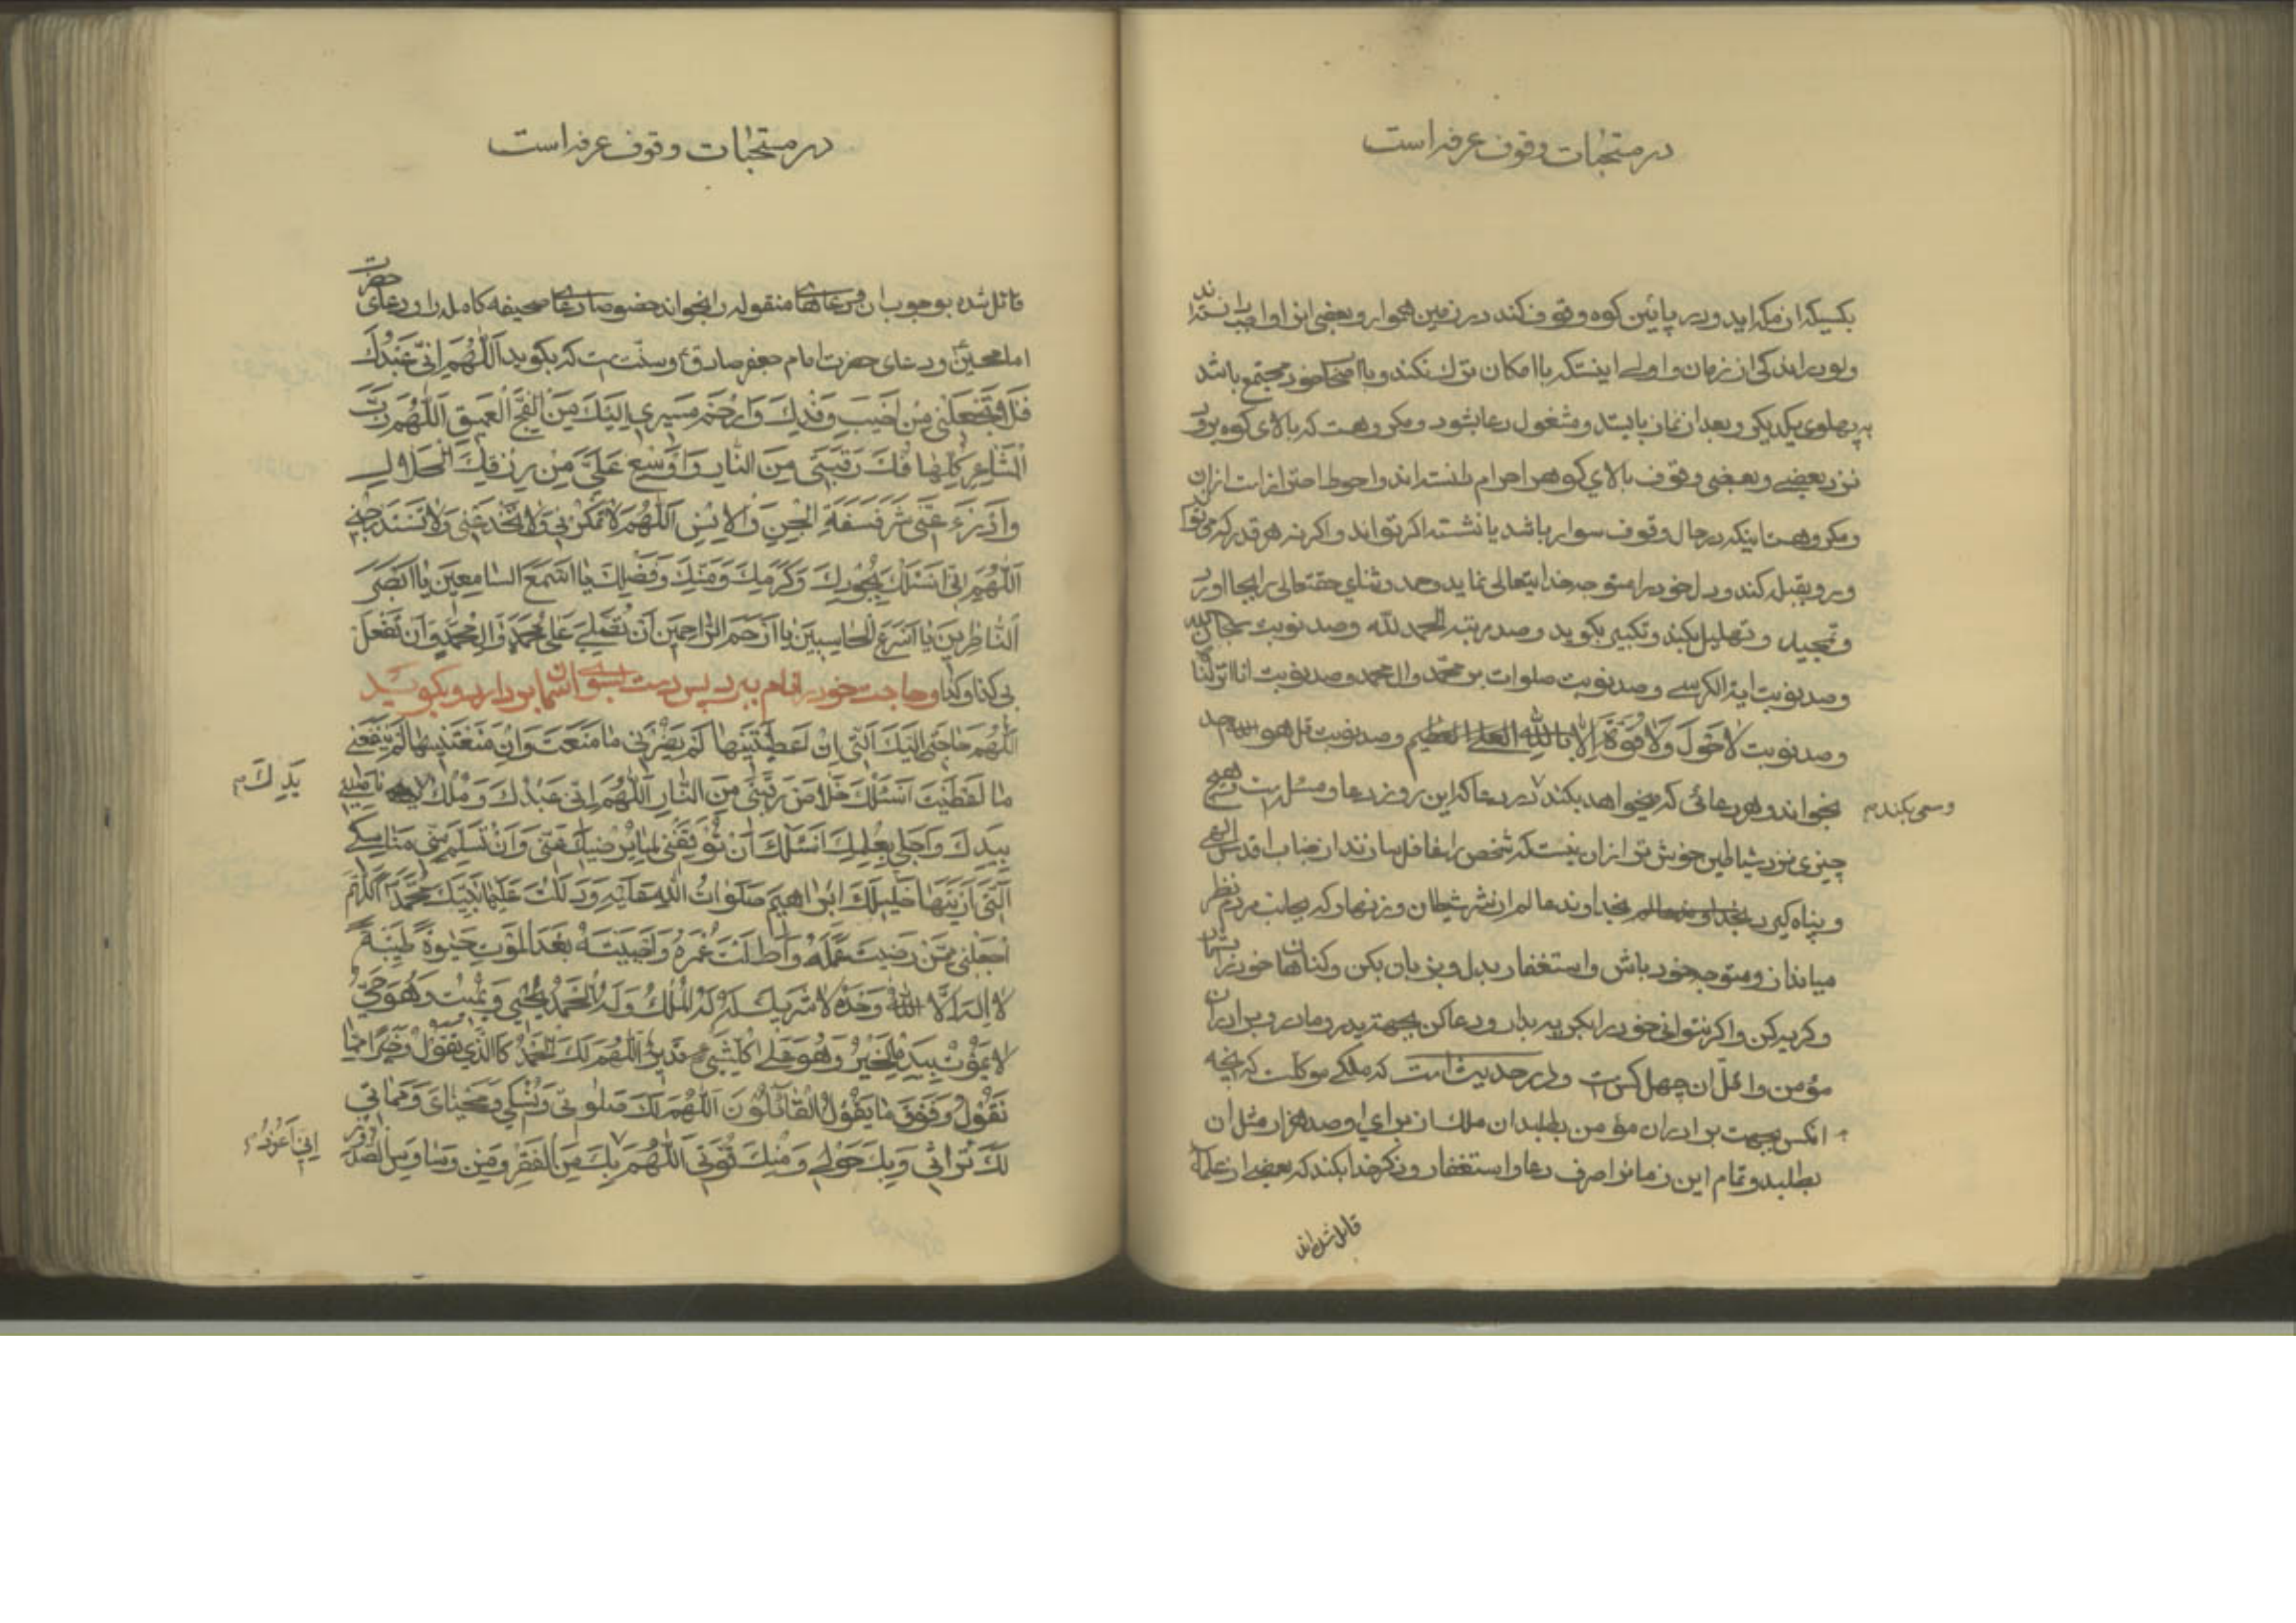 در مستحبات وقوف عرفه است
بکسیکه از مکه اید و در پائین کوه وقوف کند در زمین هموار و بعضی این را واجب دانسته‌اند
و اولی اینستکه باامکان ترک نکند و بااصحاب خود مجتمع باشد
به پهلوی یکدیکر و بعد از نماز بایستد و مشغول دعا بشود و مکروهست که بالای کوه برود
نزد بعضی و بعضی وقوف بالای کوه را حرام دانسته‌اند و احوط احتراز است ازان
و مکروهست اینکه در حال وقوف سوار باشد یا نشسته اکر تواند و اکر نه هر قدر که می‌تواند
و رو بقبله کند و دل خود را متوجه خدایتعالی نماید و حمد و ثنای حقتعالی را بجا اورد
و تمجید و تهلیل بکند و تکبیر بکوید و صد مرتبه الحمد لله و صد نوبت سبحان الله
و صد نوبت ایة الکرسی و صد نوبت صلوات بر محمد و ال محمد و صد نوبت انا انزلنا
و صد نوبت لا حول ولا قوة الا بالله العلی العظیم و صد نوبت قل هو الله احد
بخواند و هر دعائی که میخواهد بکند در دعا که این روز دعا و مسئلت است و هیچ
و سعی بکند م
چیزی نزد شیاطین خوش‌تر ازان نیست که شخص را غافل سازند از جناب اقدس الهی
و پناه کیرد بخداوند عالم از شر شیطان و زنهار که بجانب مردم نظر
میانداز و متوجه خود باش و استغفار بدل و بزبان بکن و کناهان خود را بشمار
و کریه کن و اکر نتوانی خود را بکریه بدار و دعا کن بجهت پدر و مادر و برادران
مؤمن و اقل ان چهل کس است و در حدیث است که ملکی موکلست که انچه
انکس بجهت برادران مؤمن بطلبد ان ملک از برای او صد هزار مثل ان
بطلبد و تمام این زمان را صرف دعا و استغفار و ذکر خدا بکند که بعضی از علما
قائل شده‌اند
در مستحبات وقوف عرفه است
قائل شده بوجوب ان و دعاهای منقوله را بخواند خصوصا دعای صحیفه کامله را و دعای حضرت
امام حسین و دعای حضرت امام جعفر صادق و سنت است که بکوید اللهم انی عبدک
فلا تجعلنی من اخیب وفدک وارحم مسیری الیک من الفج العمیق اللهم رب
المشاعر کلها فک رقبتی من النار واوسع علی من رزقک الحلال
وادرء عنی شر فسقة الجن والانس اللهم لا تمکر بی ولا تخدعنی ولا تستدرجنی
اللهم انی اسئلک بجودک وکرمک ومنک وفضلک یا اسمع السامعین یا ابصر
الناظرین یا اسرع الحاسبین یا ارحم الراحمین ان تصلی علی محمد وال محمد وان تفعل
بی کذا وکذا و حاجت خود را نام ببرد پس دست بسوی اسمان بردارد و بکوید
اللهم حاجتی الیک التی ان اعطیتنیها لم یضرنی ما منعت وان منعتنیها لم ینفعنی
ما اعطیت اسئلک خلاص رقبتی من النار اللهم انی عبدک وملک ناصیتی
یدک م
بیدک واجلی بعلمک اسئلک ان توفقنی لما یرضیک عنی وان تسلم منی مناسکی
التی اریتها خلیلک ابراهیم صلوات الله علیه ودللت علیها نبیک محمدا اللهم
اجعلنی ممن رضیت عمله واطلت عمره واحییته بعد الموت حیوة طیبة
لا اله الا الله وحده لا شریک له له الملک وله الحمد یحیی ویمیت وهو حی
لا یموت بیده الخیر وهو علی کل شیئ قدیر اللهم لک الحمد کالذی تقول وخیرا مما
نقول وفوق ما یقول القائلون اللهم لک صلوتی ونسکی ومحیای ومماتی
لک تراثی وبک حولی ومنک قوتی اللهم بک من الفقر ومن وساوس الصدور
انی اعوذ